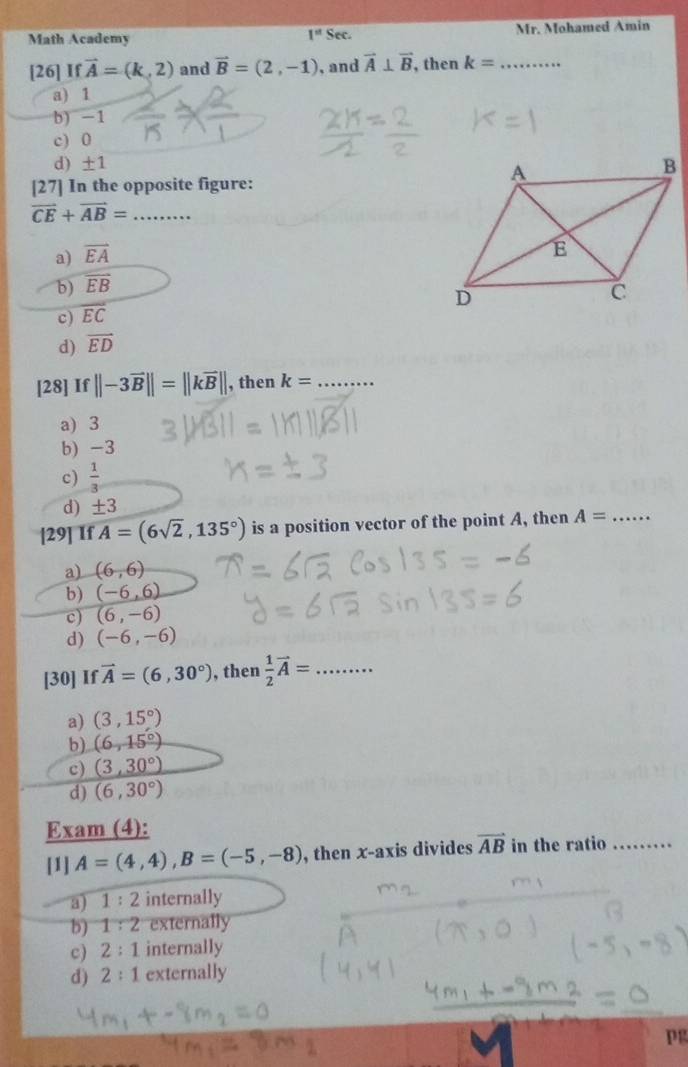 Math Academy 1st Sec. Mr. Mohamed Amin
[26] If A⃗ = (k , 2) and B⃗ = (2 , −1), and A⃗ ⊥ B⃗, then k = ..........
a) 1
b) −1
c) 0
d) ±1
2/K ≠ 2/1
2K/2 = 2/2 K = 1
[27] In the opposite figure:
CE⃗ + AB⃗ = .........
a) EA⃗
b) EB⃗
c) EC⃗
d) ED⃗
A B
E
D C
[28] If ‖−3B⃗‖ = ‖kB⃗‖, then k = .........
a) 3
b) −3
c) 1/3
d) ±3
3‖B⃗‖ = |K|‖B⃗‖
K = ±3
[29] If A = (6√2 , 135°) is a position vector of the point A, then A = ......
a) (6 , 6)
b) (−6 , 6)
c) (6 , −6)
d) (−6 , −6)
x = 6√2 Cos 135 = -6
y = 6√2 Sin 135 = 6
[30] If A⃗ = (6 , 30°), then 1/2 A⃗ = .........
a) (3 , 15°)
b) (6 , 15°)
c) (3 , 30°)
d) (6 , 30°)
Exam (4):
[1] A = (4 , 4) , B = (−5 , −8), then x-axis divides AB⃗ in the ratio .........
a) 1 : 2 internally
b) 1 : 2 externally
c) 2 : 1 internally
d) 2 : 1 externally
m2 m1
A (x, 0) B
(4, 4) (-5, -8)
4m1 + -8m2 / m1 + m2 = 0
4m1 + -8m2 = 0
4m1 = 8m2
pg